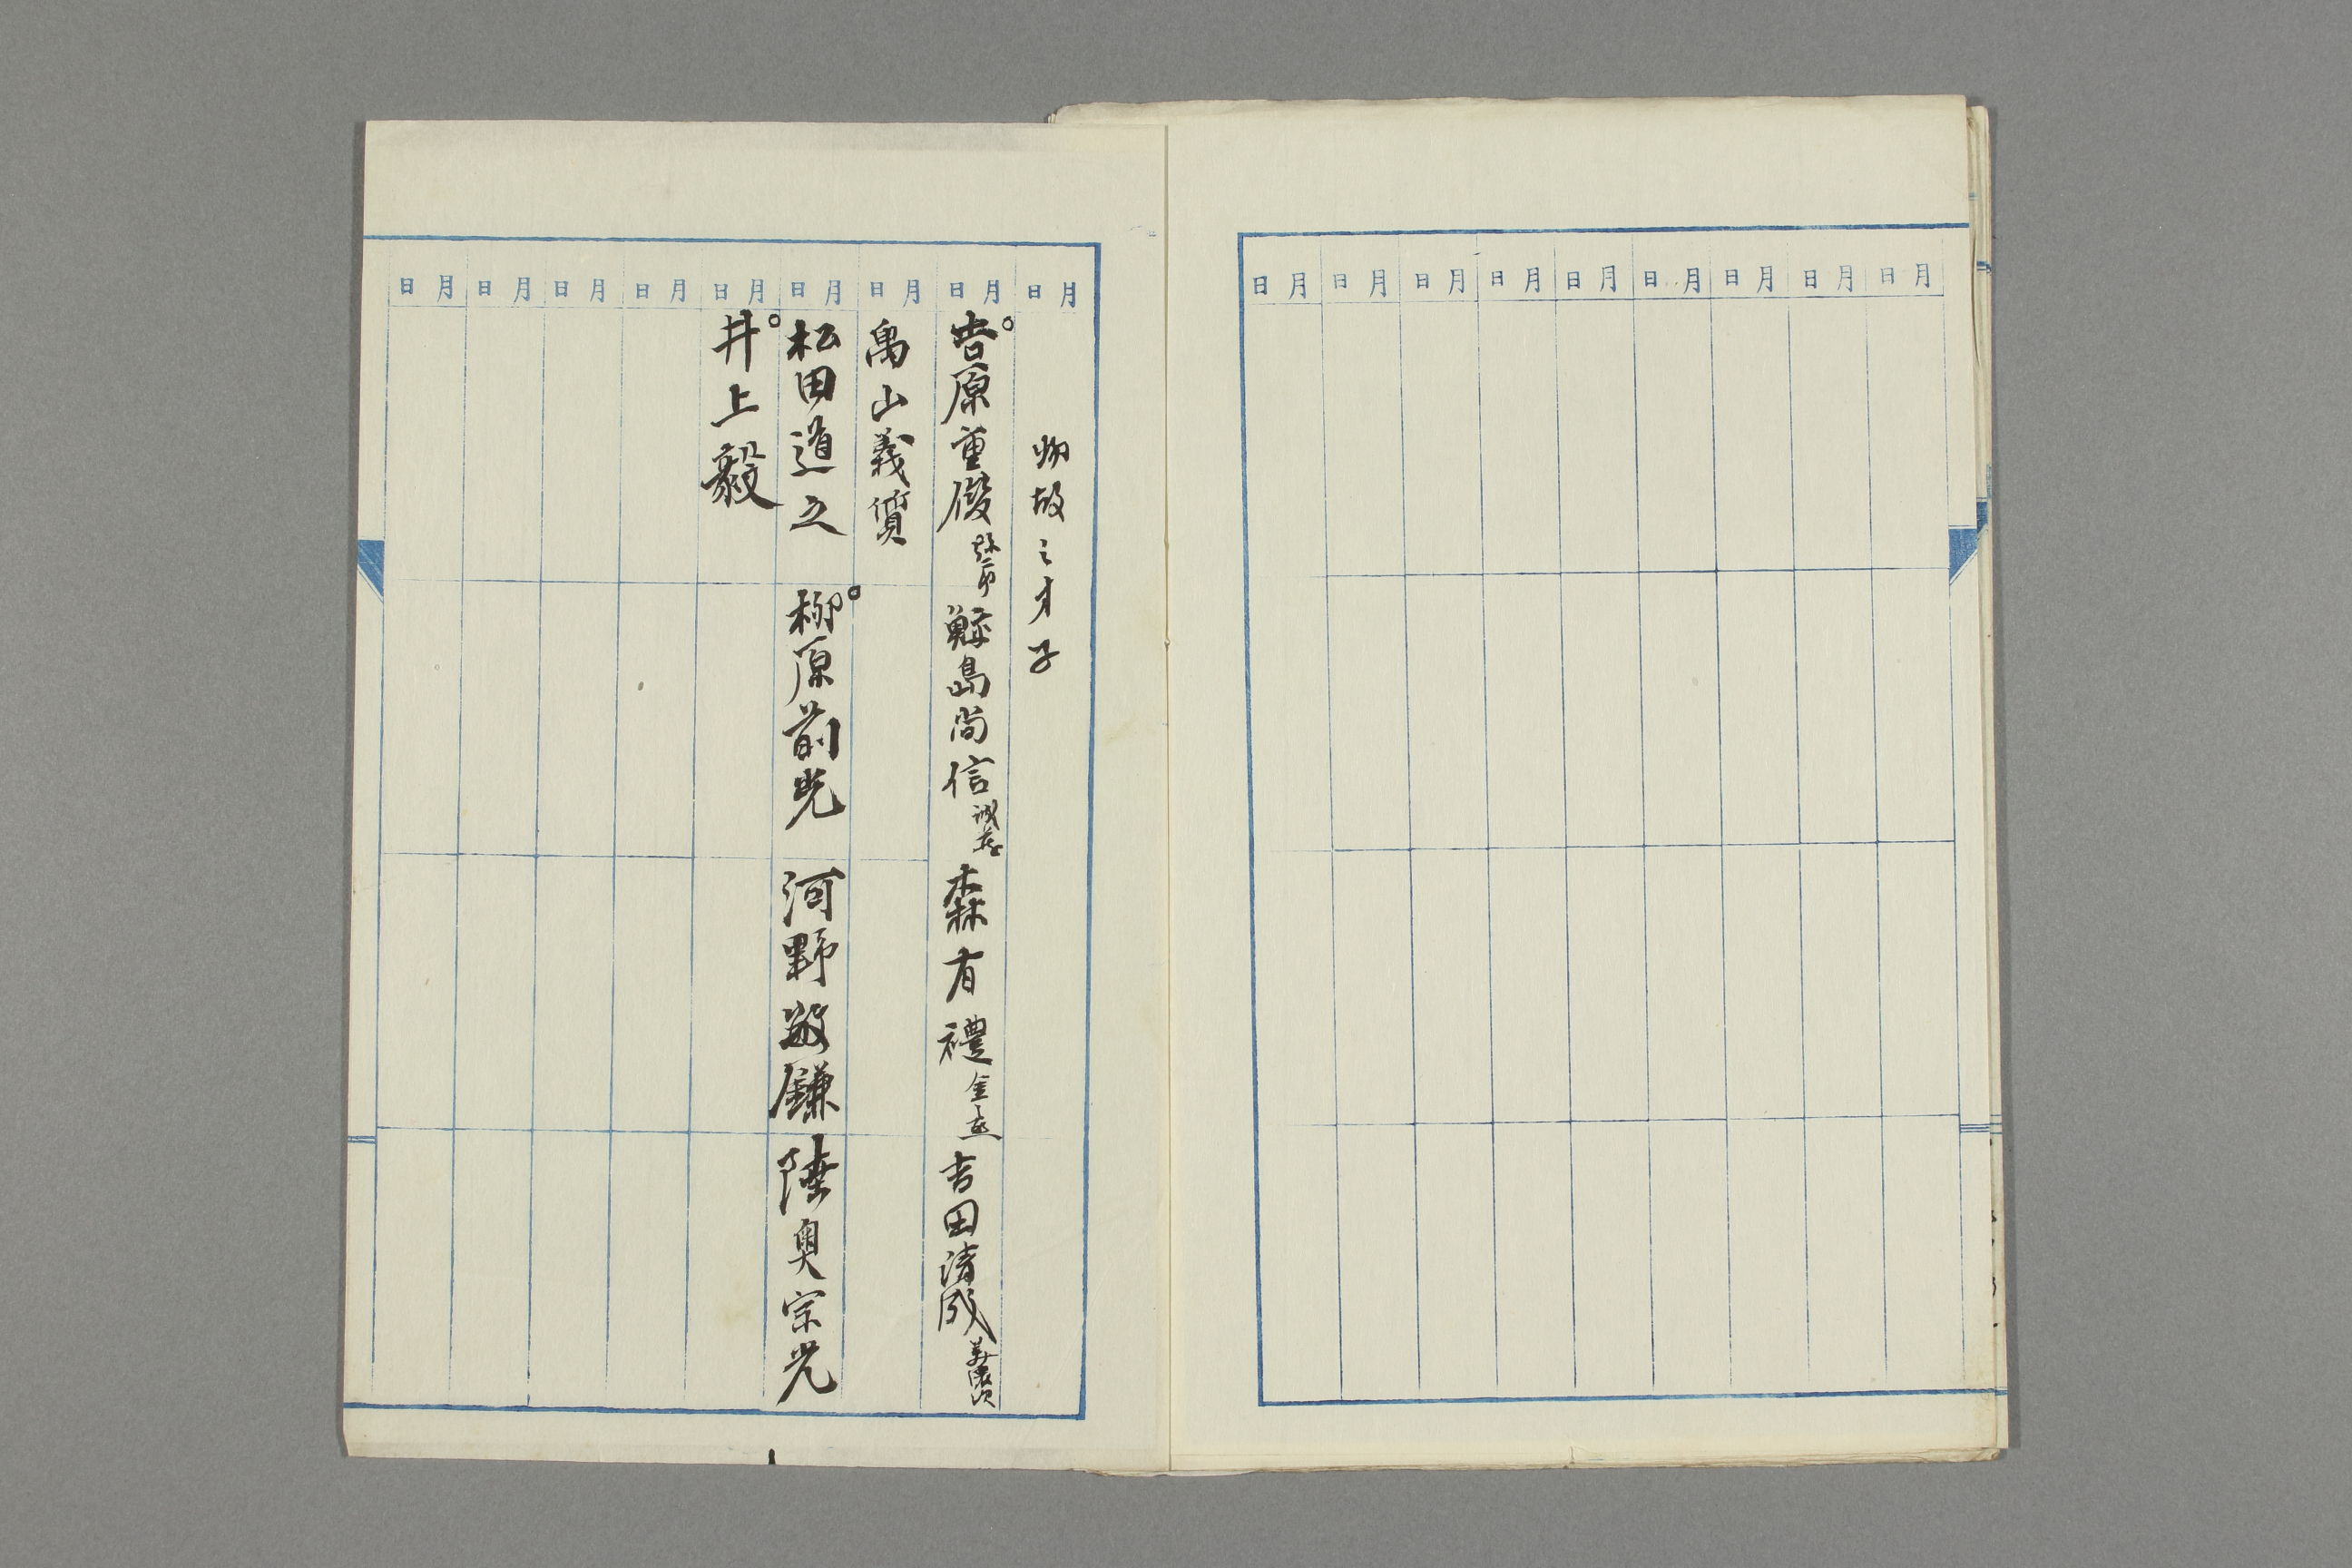 月日 月日 月日 月日 月日 月日 月日 月日 月日
月日 月日 月日 月日 月日 月日 月日 月日 月日
物故之才子
吉原重俊 鮫島尚信 誠蔵 森有禮 金之丞 吉田清成
畠山義質
松田道之 柳原前光 河野敏鎌 陸奥宗光
井上毅